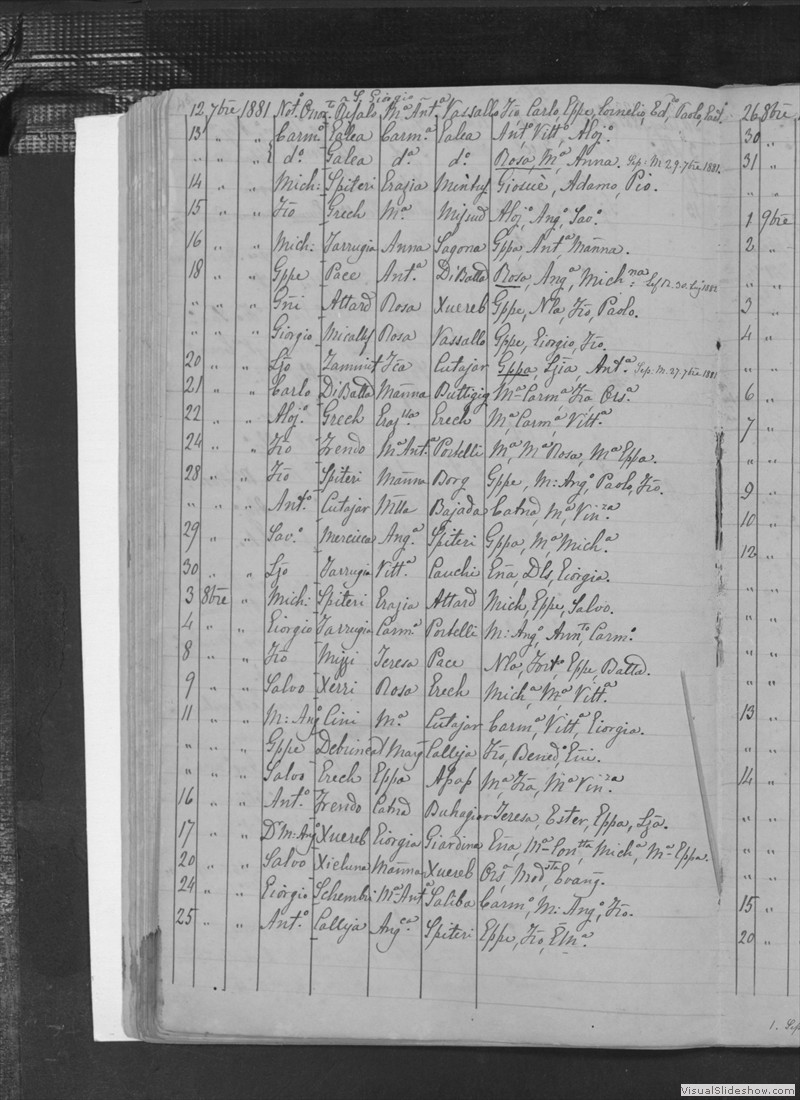 S. Giorgio
12 7bre 1881 Not.o Refalo M.a Ant.a Vassallo Fco Carlo, Eppe, Cornelio, Ed.o Paolo,
13 „ „ Carm.o Galea Carm.a Galea Ant.o Vitt.o Aloj.o
„ „ „ d.o Galea d.a d.o Rosa, M.a Anna. Sep: M. 29. 7bre 1881.
14 „ „ Mich: Spiteri Grazia Mintuf Giosuè, Adamo, Pio.
15 „ „ Fco Grech M.a Mifsud Aloj.o Ang.o Sav.o
16 „ „ Mich: Farrugia Anna Sagona Gppa, Ant.a Manna.
18 „ „ Gppe Pace Ant.a DiBatta Rosa, Ang.a Mich.na
„ „ „ Gni Attard Rosa Xuereb Gppe, Nla, Fco, Paolo.
„ „ „ Giorgio Micallef Rosa Vassallo Gppe, Giorgio, Fco.
20 „ „ Ljo Zammit Fca Cutajar Gppa, Ljia, Ant.a Sep: M. 27. 7bre 1881
21 „ „ Carlo DiBatta Manna Buttigig M.a Carm.a Fca Ors.a
22 „ „ Aloj.o Grech Graj.lla Grech M.a Carm.a Vitt.a
24 „ „ Fco Frendo M.a Ant.a Portelli M.a, M.a Rosa, M.a Eppa.
28 „ „ Fco Spiteri Manna Borg Gppe, M: Ang.o, Paolo, Fco.
„ „ „ Ant.o Cutajar Mlla Bajada Catnd, M.a, Vin.za
29 „ „ Sav.o Mercieca Ang.a Spiteri Gppa, M.a Mich.a
30 „ „ Ljo Farrugia Vitt.a Cauchi Ena, Dls, Giorgia.
3 8bre „ Mich: Spiteri Grazia Attard Mich, Eppe, Salvo.
4 „ „ Giorgio Farrugia Carm.a Portelli M: Ang.o, Ann.to Carm.o
8 „ „ Fco Mizzi Teresa Pace Nla, Fort.o Eppe, Batta.
9 „ „ Salvo Xerri Rosa Grech Mich.a M.a Vitt.a
11 „ „ M: Ang.o Cini M.a Cutajar Carm.a Vitt.a Giorgia.
„ „ „ Gppe Debrincat Marg.a Calleja Fco, Bened.o Eni.
„ „ „ Salvo Grech Eppa Apap M.a Fca, M.a Vin.za
16 „ „ Ant.o Frendo Catnd Buhagiar Teresa, Ester, Eppa, Lja.
17 „ „ Dr M: Ang.o Xuereb Giorgia Giardina Ena, M.a Mich.a, M.a Eppa.
20 „ „ Salvo Xicluna Manna Xuereb Ors.o, Mod.sta Evang.
24 „ „ Giorgio Schembri M.a Ant.a Saliba Carm.o, M: Ang.o, Fco.
25 „ „ Ant.o Calleja Ang.ca Spiteri Eppe, Fco,
26 8bre
30 „
31 „
„ „
1 9bre
2 „
„ „
3 „
4 „
„ „
6 „
7 „
„ „
9 „
10 „
12 „
13 „
14 „
„ „
„ „
„ „
15 „
20 „
1. Sep
VisualSlideshow.com